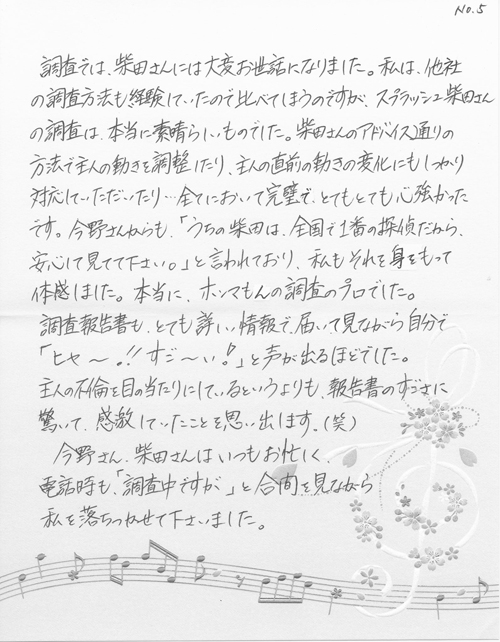 No.5
調査では、柴田さんには大変お世話になりました。私は、他社
の調査方法も経験していたので比べてしまうのですが、スプラッシュ柴田さん
の調査は、本当に素晴らしいものでした。柴田さんのアドバイス通りの
方法で主人の動きを調整したり、主人の直前の動きの変化にもしっかり
対応していただいたり…全てにおいて完璧で、とてもとても心強かった
です。今野さんからも、「うちの柴田は、全国で1番の探偵だから、
安心して見てて下さい。」と言われており、私もそれを身をもって
体感しました。本当に、ホンマもんの調査のプロでした。
調査報告書も、とても詳しい情報で、届いて見ながら自分で
「ヒャ〜!!すご〜い!」と声が出るほどでした。
主人の不倫を目の当たりにしているというよりも、報告書のすごさに
驚いて、感激していたことを思い出します。(笑)
今野さん、柴田さんはいつもお忙しく
電話時も、「調査中ですが」と合間を見ながら
私を落ちつかせて下さいました。